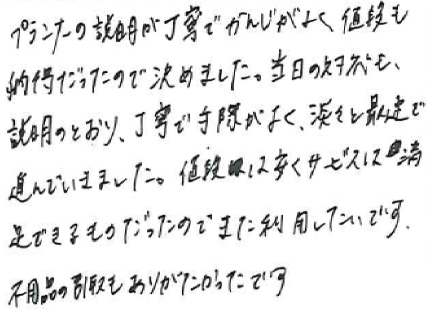 プランナーの説明が丁寧でかんじがよく値段も
納得だったので決めました。当日の対応も、
説明のとおり、丁寧で手際がよく、淡々と最速で
進んでいきました。値段は安くサービスは満
足できるものだったのでまた利用したいです。
不用品の引取もありがたかったです